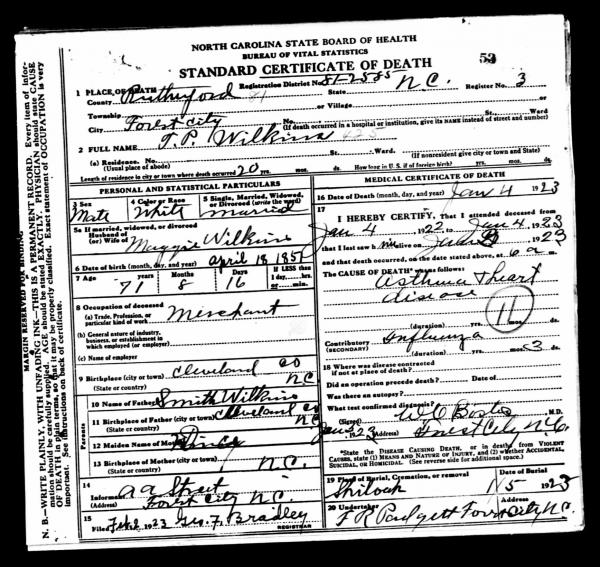 NORTH CAROLINA STATE BOARD OF HEALTH
BUREAU OF VITAL STATISTICS
STANDARD CERTIFICATE OF DEATH 53
MARGIN RESERVED FOR BINDING
N. B.—WRITE PLAINLY, WITH UNFADING INK—THIS IS A PERMANENT RECORD. Every item of information should be carefully supplied. AGE should be stated EXACTLY. PHYSICIAN should state CAUSE OF DEATH in plain terms, so that it may be properly classified. Exact statement of OCCUPATION is very important. See instructions on back of certificate.
1 PLACE OF DEATH Registration District No. 81-2585 Register No. 3
County Rutherford State N.C.
Township or Village
City Forest City No. St., Ward
(If death occurred in a hospital or institution, give its NAME instead of street and number)
2 FULL NAME T. P. Wilkins
(a) Residence. No. St., Ward.
(Usual place of abode) (If nonresident give city or town and State)
Length of residence in city or town where death occurred 20 yrs. mos. ds. How long in U. S. if of foreign birth? yrs. mos. ds.
PERSONAL AND STATISTICAL PARTICULARS
3 Sex 4 Color or Race 5 Single, Married, Widowed, or Divorced (write the word)
Male White Married
5a If married, widowed, or divorced
Husband of
(or) Wife of Maggie Wilkins
6 Date of birth (month, day, and year) April 18 1851
7 Age Years Months Days If LESS than
1 day, hrs.
or min.
71 8 16
8 Occupation of deceased
(a) Trade, Profession, or particular kind of work Merchant
(b) General nature of industry, business, or establishment in which employed (or employer)
(c) Name of employer
9 Birthplace (city or town) Cleveland Co
(State or country) NC
Parents
10 Name of Father Smith Wilkins
11 Birthplace of Father (city or town) Cleveland Co
(State or country) NC
12 Maiden Name of Mother
13 Birthplace of Mother (city or town)
(State or country) N.C.
14
Informant
(Address) Forest City N.C.
15
Filed Feb 2 1923 Geo. F. Bradley
REGISTRAR
MEDICAL CERTIFICATE OF DEATH
16 Date of Death (month, day, and year) Jan 4 1923
17
I HEREBY CERTIFY, That I attended deceased from
Jan 4 1922 to Jan 4 1923
that I last saw him alive on 1923
and that death occurred, on the date stated above, at 6 a m.
The CAUSE OF DEATH* was as follows:
Asthma & heart
disease
11
(duration) yrs. mos. ds.
Contributory Influenza
(SECONDARY)
(duration) yrs. mos. 3 ds.
18 Where was disease contracted
if not at place of death?
Did an operation precede death? Date of
Was there an autopsy?
What test confirmed diagnosis?
(Signed) M.D.
1923 (Address) Forest City N.C.
*State the DISEASE CAUSING DEATH, or in deaths from VIOLENT CAUSES, state (1) MEANS AND NATURE OF INJURY, and (2) whether ACCIDENTAL, SUICIDAL, or HOMICIDAL. (See reverse side for additional space.)
19 Place of Burial, Cremation, or removal Date of Burial
Shiloah 1/5 1923
20 Undertaker Address
F R Padgett Forest City N.C.